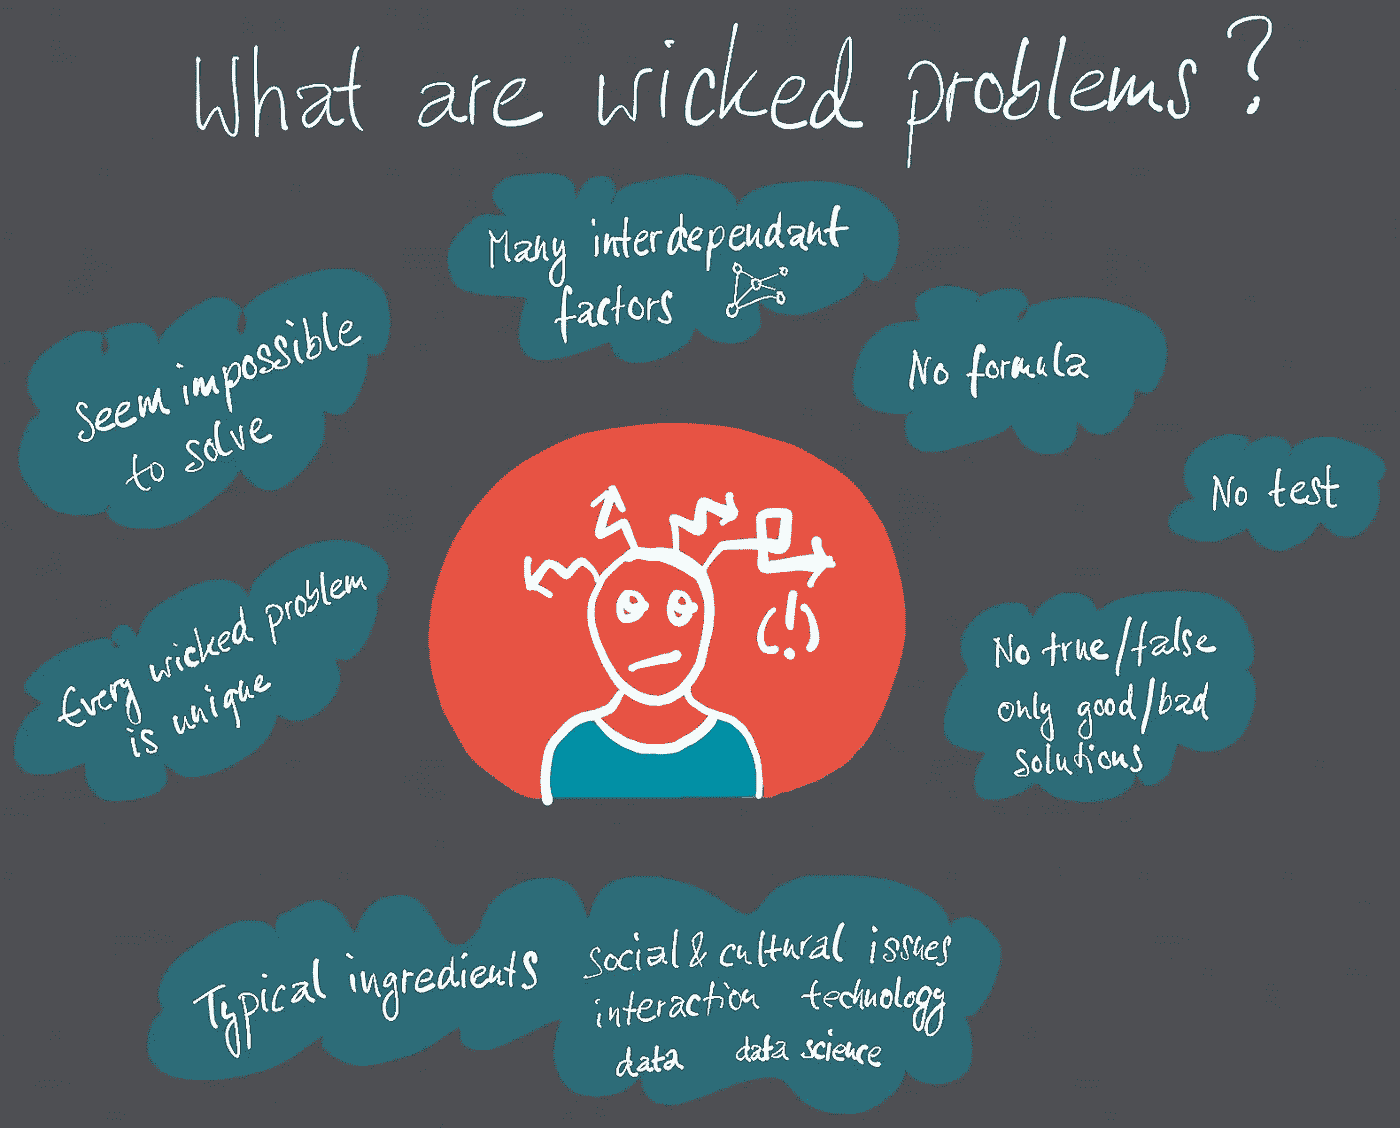 What are wicked problems?
Many interdependant
factors
Seem impossible
to solve
No formula
No test
Every wicked problem
is unique
(!)
No true/false
only good/bad
solutions
Typical ingredients
Social & cultural issues
interaction technology
data data science